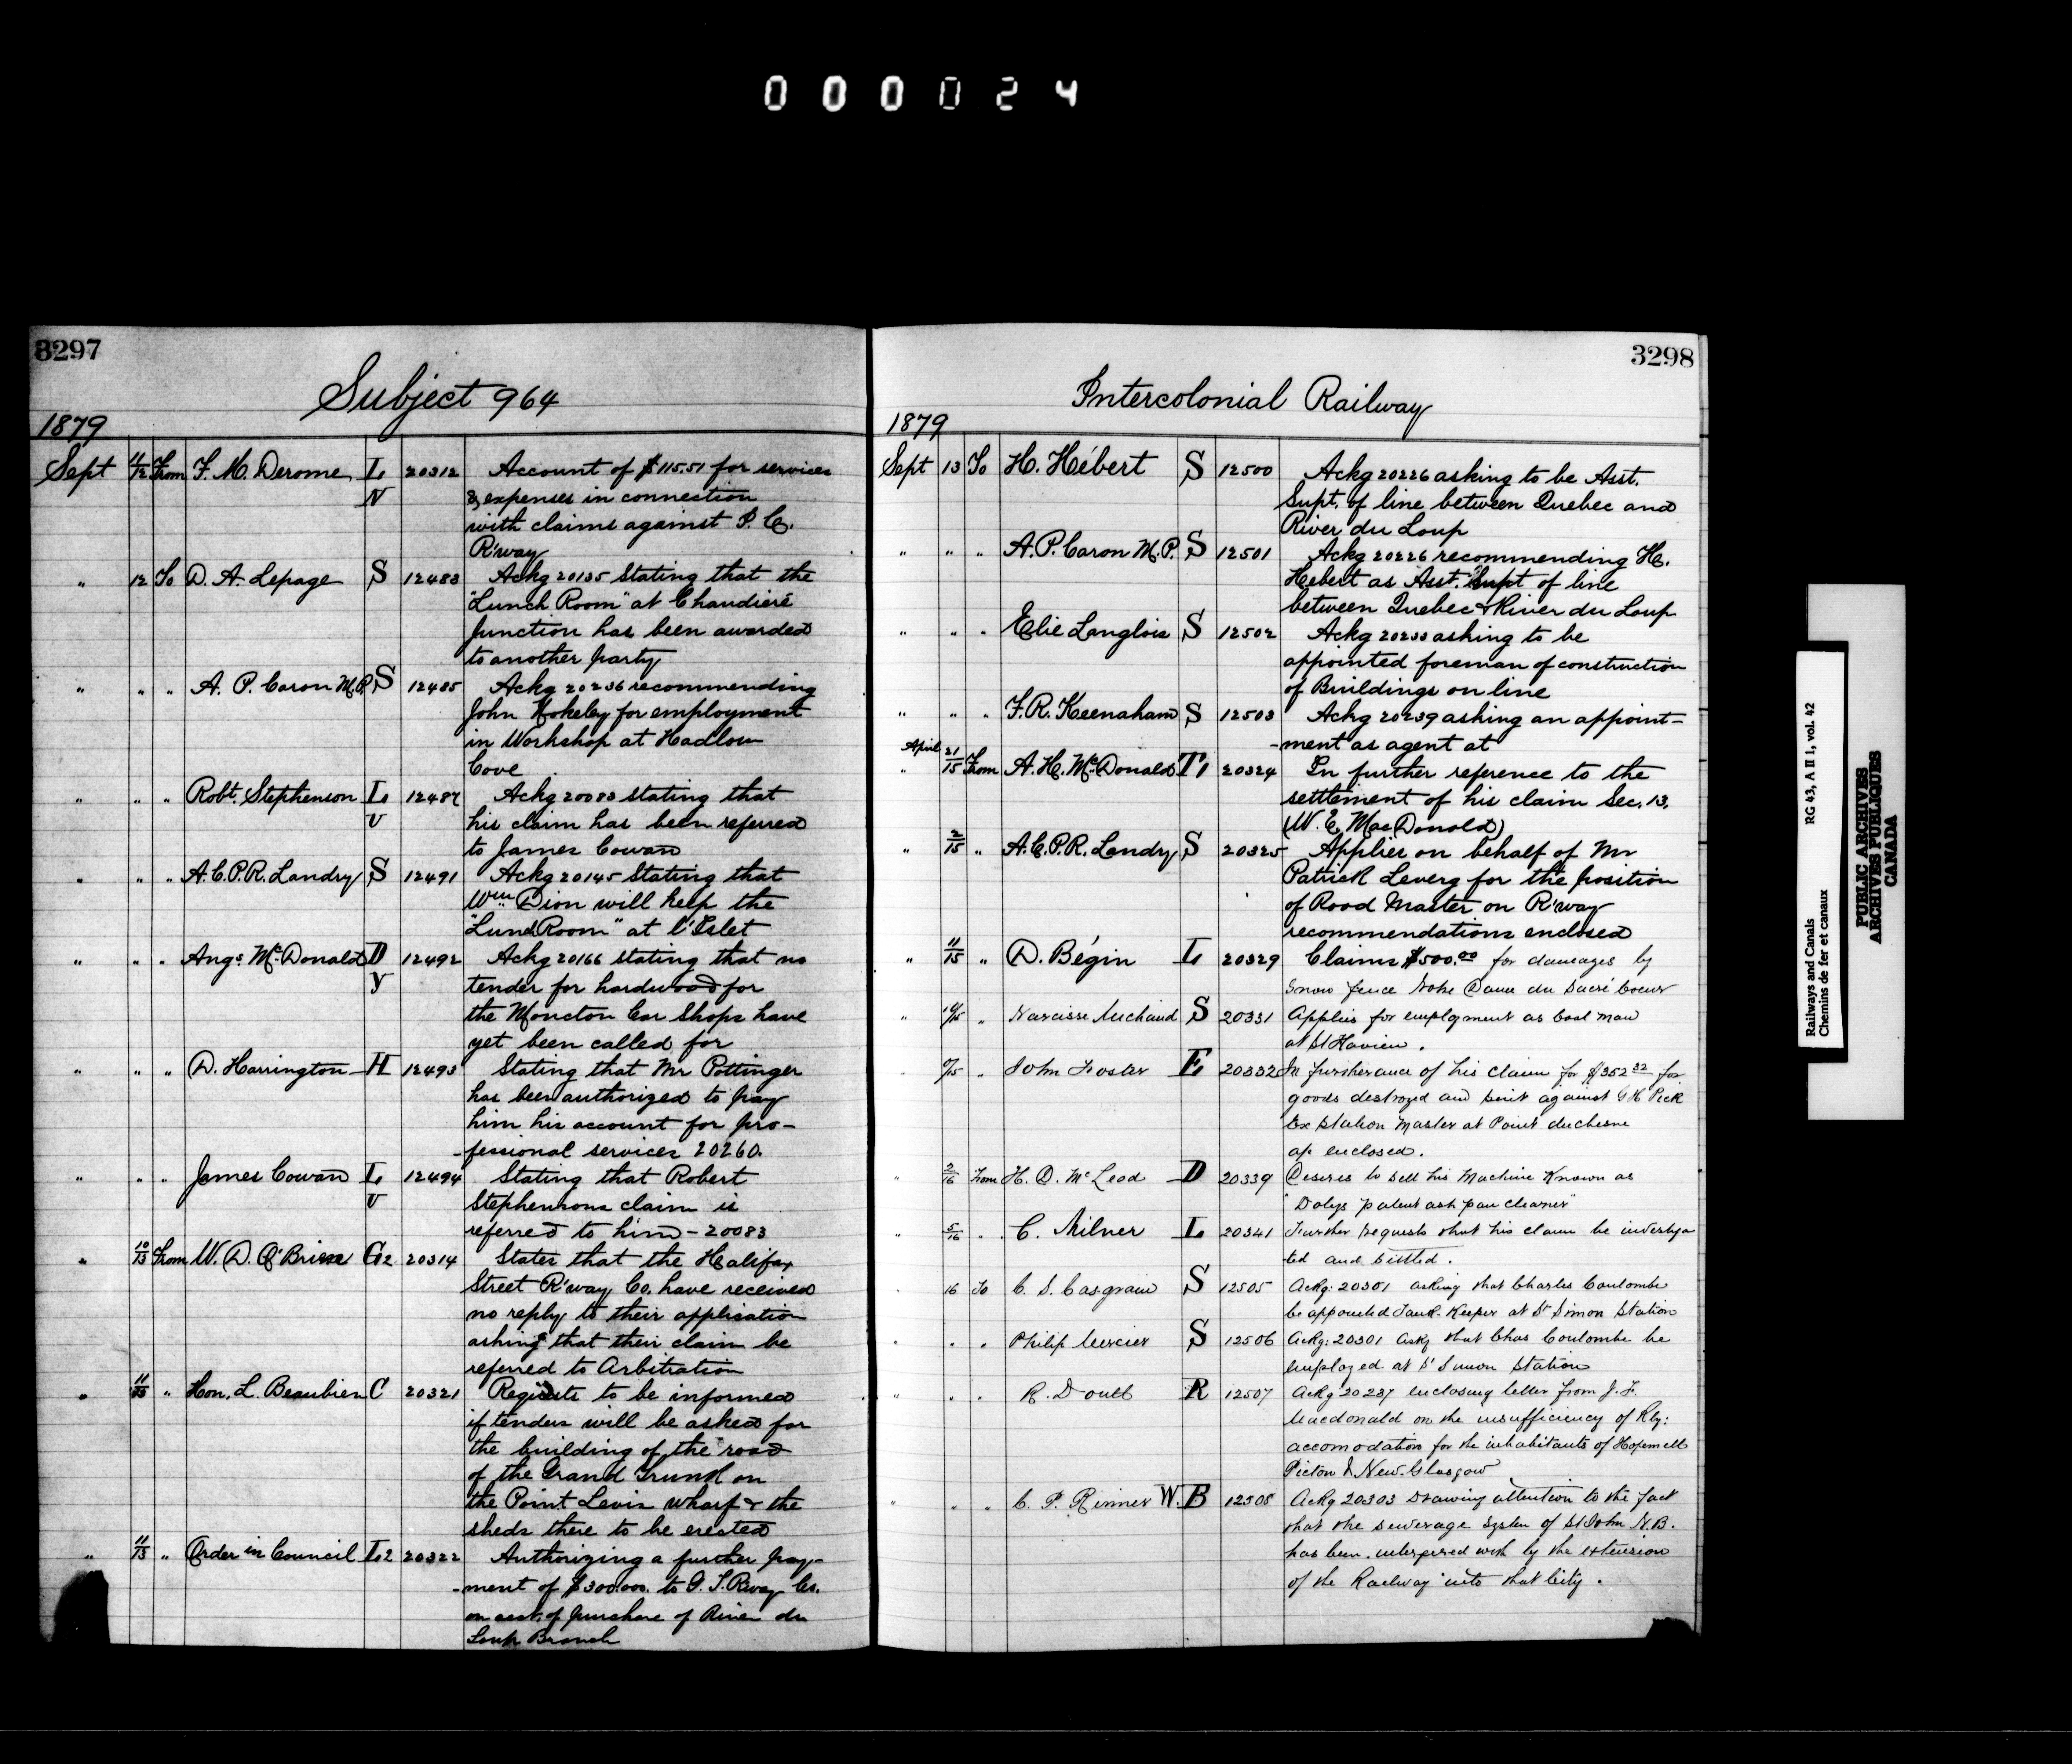 000024
3297
Subject 964
1879
Sept 11/12 From F. M. Derome L 20312 Account of $115.51 for services
N & expenses in connection
with claims against P. E.
R'way
" 12 To D. A. Lepage S 12483 Ackg 20135 stating that the
"Lunch Room" at Chaudière
Junction has been awarded
to another party
" " " A. P. Caron M.P. S 12485 Ackg 20236 recommending
John for employment
in Workshop at Hadlow
Cove
" " " Robt. Stephenson L 12487 Ackg 20083 stating that
v his claim has been referred
to James Cowan
" " " A.C.P.R. Landry S 12491 Ackg 20145 stating that
Wm Dion will keep the
"Lunch Room" at L'Islet
" " " Angs. McDonald D 12492 Ackg 20166 stating that no
y tender for hardwood for
the Moncton Car Shops have
yet been called for
" " " D. Harrington H 12493 Stating that Mr Pottinger
has been authorized to pay
him his account for pro-
-fessional services 20260.
" " " James Cowan L 12494 Stating that Robert
v Stephensons claim is
referred to him - 20083
" 10/13 From W. D. O'Brien G2 20314 States that the Halifax
Street R'way Co. have received
no reply to their application
asking that their claim be
referred to Arbitration
" " Hon. L. Beaubien C 20321 Requests to be informed
if tenders will be asked for
the building of the road
of the Grand Trunk on
the Point Levis wharf & the
sheds there to be erected
" 11/13 " Order in Council L2 20322 Authorizing a further pay-
-ment of $300.000. to G. T. Rway Co.
on acct. of purchase of River du
Loup Branch
3298
Intercolonial Railway
1879
Sept 13 To H. Hébert S 12500 Ackg 20226 asking to be Asst.
Supt. of line between Quebec and
River du Loup
" " " A. P. Caron M.P. S 12501 Ackg 20226 recommending H.
Hebert as Asst. Supt of line
between Quebec & River du Loup
" " " Elie Langlois S 12502 Ackg asking to be
appointed foreman of construction
of Buildings on line
" " " F. R. Keenaham S 12503 Ackg 20239 asking an appoint-
-ment as agent at
April
" 21/15 From A. H. McDonald T1 20324 In further reference to the
settlement of his claim Sec. 13.
(W. E. MacDonald)
" 2/15 " A.C.P.R. Landry S 20325 Applies on behalf of Mr
Patrick Leverg for the position
of Road Master on R'way
recommendations enclosed
" 11/15 " D. Bégin L 20329 Claims $500.00 for damages by
Snow fence Notre Dame du Sacré Coeur
" " Narcisse Michaud S 20331 Applies for employment as Coal man
at St
" " John Foster E 20332 In furtherance of his claim for $352 32 for
goods destroyed and suit against G H Pick
Ex Station Master at Point duchesne
ap enclosed.
" 2/16 From H. D. McLeod D 20339 Desires to sell his Machine Known as
"Dolys patent ash pan cleaner"
" 5/16 " C. Milner L 20341 Further requests that his claim be investiga
ted and settled.
16 To C. S. Casgrain S 12505 Ackg: 20301 asking that Charles Coulombe
be appointed Tank Keeper at St Simon Station
" " " Philip Mercier S 12506 Ackg: 20301 askg that Chas Coulombe be
employed at St Simon Station
" " " R. Doull R 12507 Ackg 20237 enclosing letter from J. F.
Macdonald on the insufficiency of Rly:
accomodation for the inhabitants of Hopewell
Picton & New. Glasgow
" " " C. P. W. B 12508 Ackg 20303 Drawing attention to the fact
that the sewerage system of St John N.B.
has been. interfered with by the extension
of the Railway into that City.
Railways and Canals RG 43, A II 1, vol. 42
Chemins de fer et canaux
PUBLIC ARCHIVES
ARCHIVES PUBLIQUES
CANADA